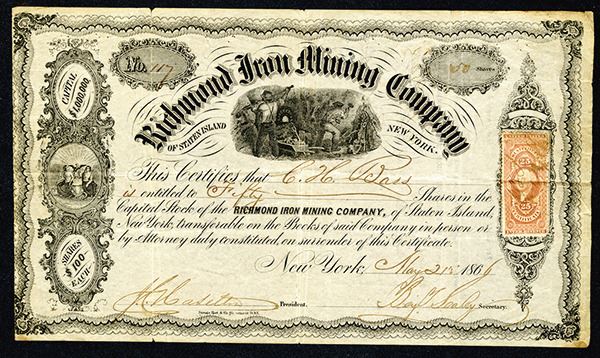 No. 117
50 Shares
Richmond Iron Mining Company
OF STATEN ISLAND NEW YORK.
CAPITAL $1,000,000.
SHARES $100 EACH
This Certifies that C. H. Bass
is entitled to Fifty Shares in the
Capital Stock of the RICHMOND IRON MINING COMPANY, of Staten Island,
New York, transferable on the Books of said Company in person or
by Attorney duly constituted, on surrender of this Certificate.
New York, May 21st 1866
President.
Secretary.
25
25